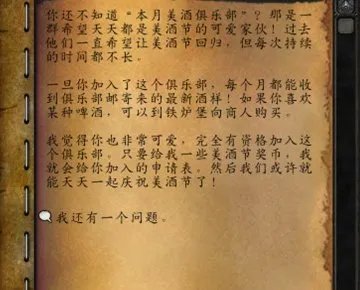 你还不知道“本月美酒俱乐部”？那是一
群希望天天都是美酒节的可爱家伙！过去
他们一直希望让美酒节回归，但每次持续
的时间都不长。
一旦你加入了这个俱乐部，每个月都能收
到俱乐部邮寄来的最新酒样！如果你喜欢
某种啤酒，可以到铁炉堡向商人购买。
我觉得你也非常可爱，完全有资格加入这
个俱乐部。只要给我一些美酒节奖币，我
就会给你加入的申请表。然后我们或许就
能天天一起庆祝美酒节了！
我还有一个问题。